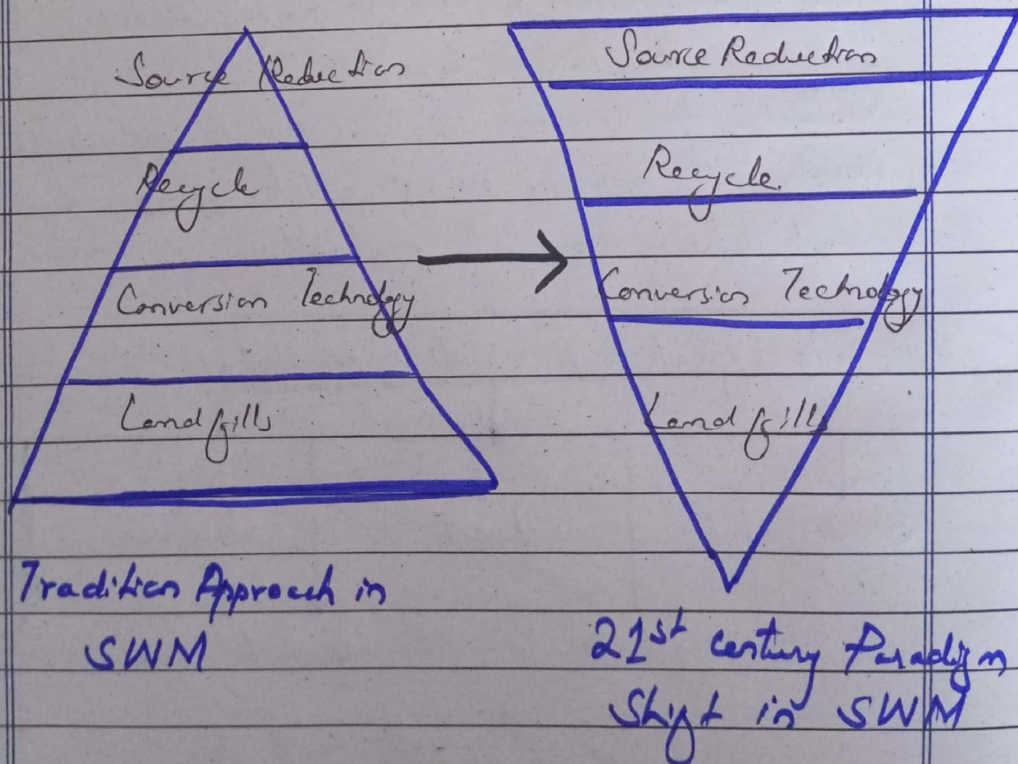 Source Reduction
Recycle
Conversion Technology
Landfills
Tradition Approach in
SWM
Source Reduction
Recycle
Conversion Technology
Landfills
21st century Paradigm
Shift in SWM